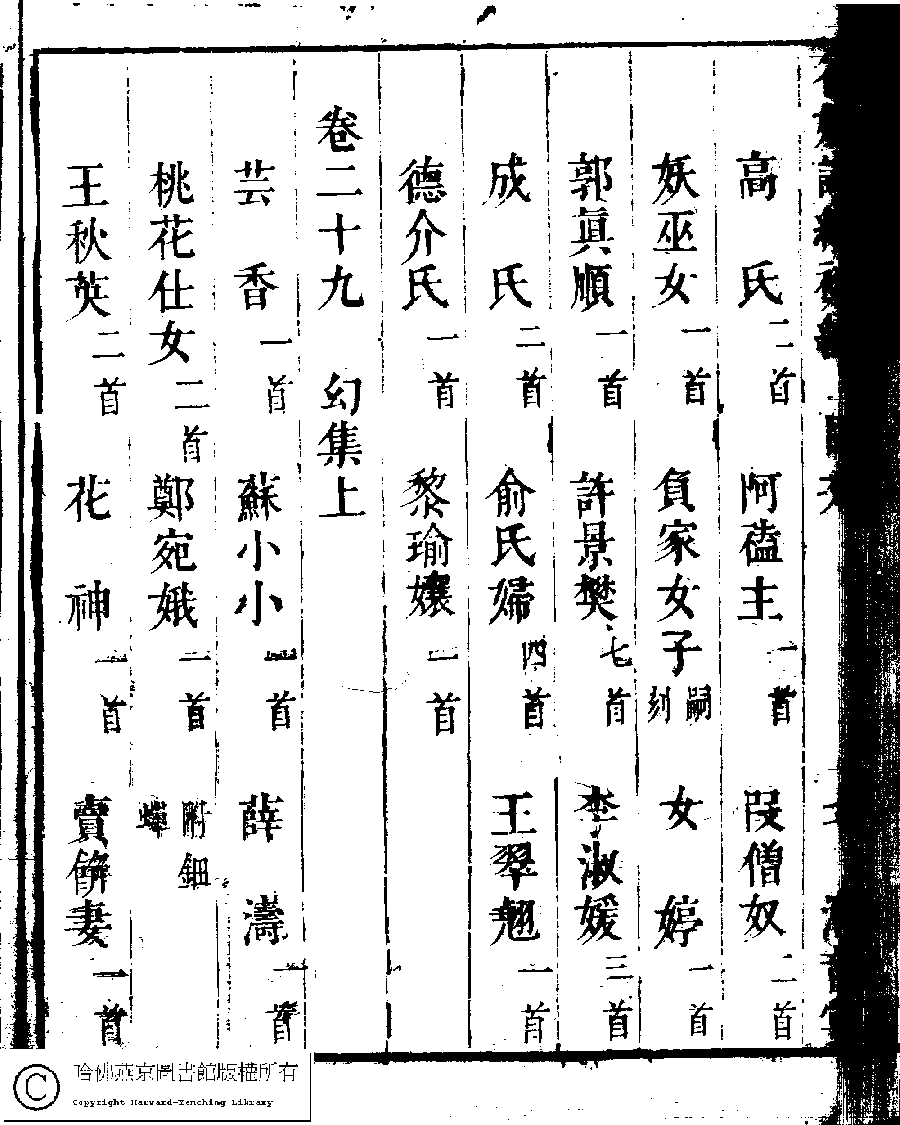 高氏二首 阿䃯主一首 段僧奴二首
妖巫女一首 負家女子嗣刻 女婷一首
郭眞順一首 許景樊七首 李淑媛三首
成氏二首 俞氏婦四首 王翠翹一首
德介氏一首 黎瑜孃一首
卷二十九 幻集上
芸香一首 蘇小小一首 薛濤一首
桃花仕女二首 鄭宛娥一首 附鈿蟬
王秋英二首 花神一首 賣䭔妻一首
哈佛燕京圖書館版權所有
Copyright Harvard-Yenching Library